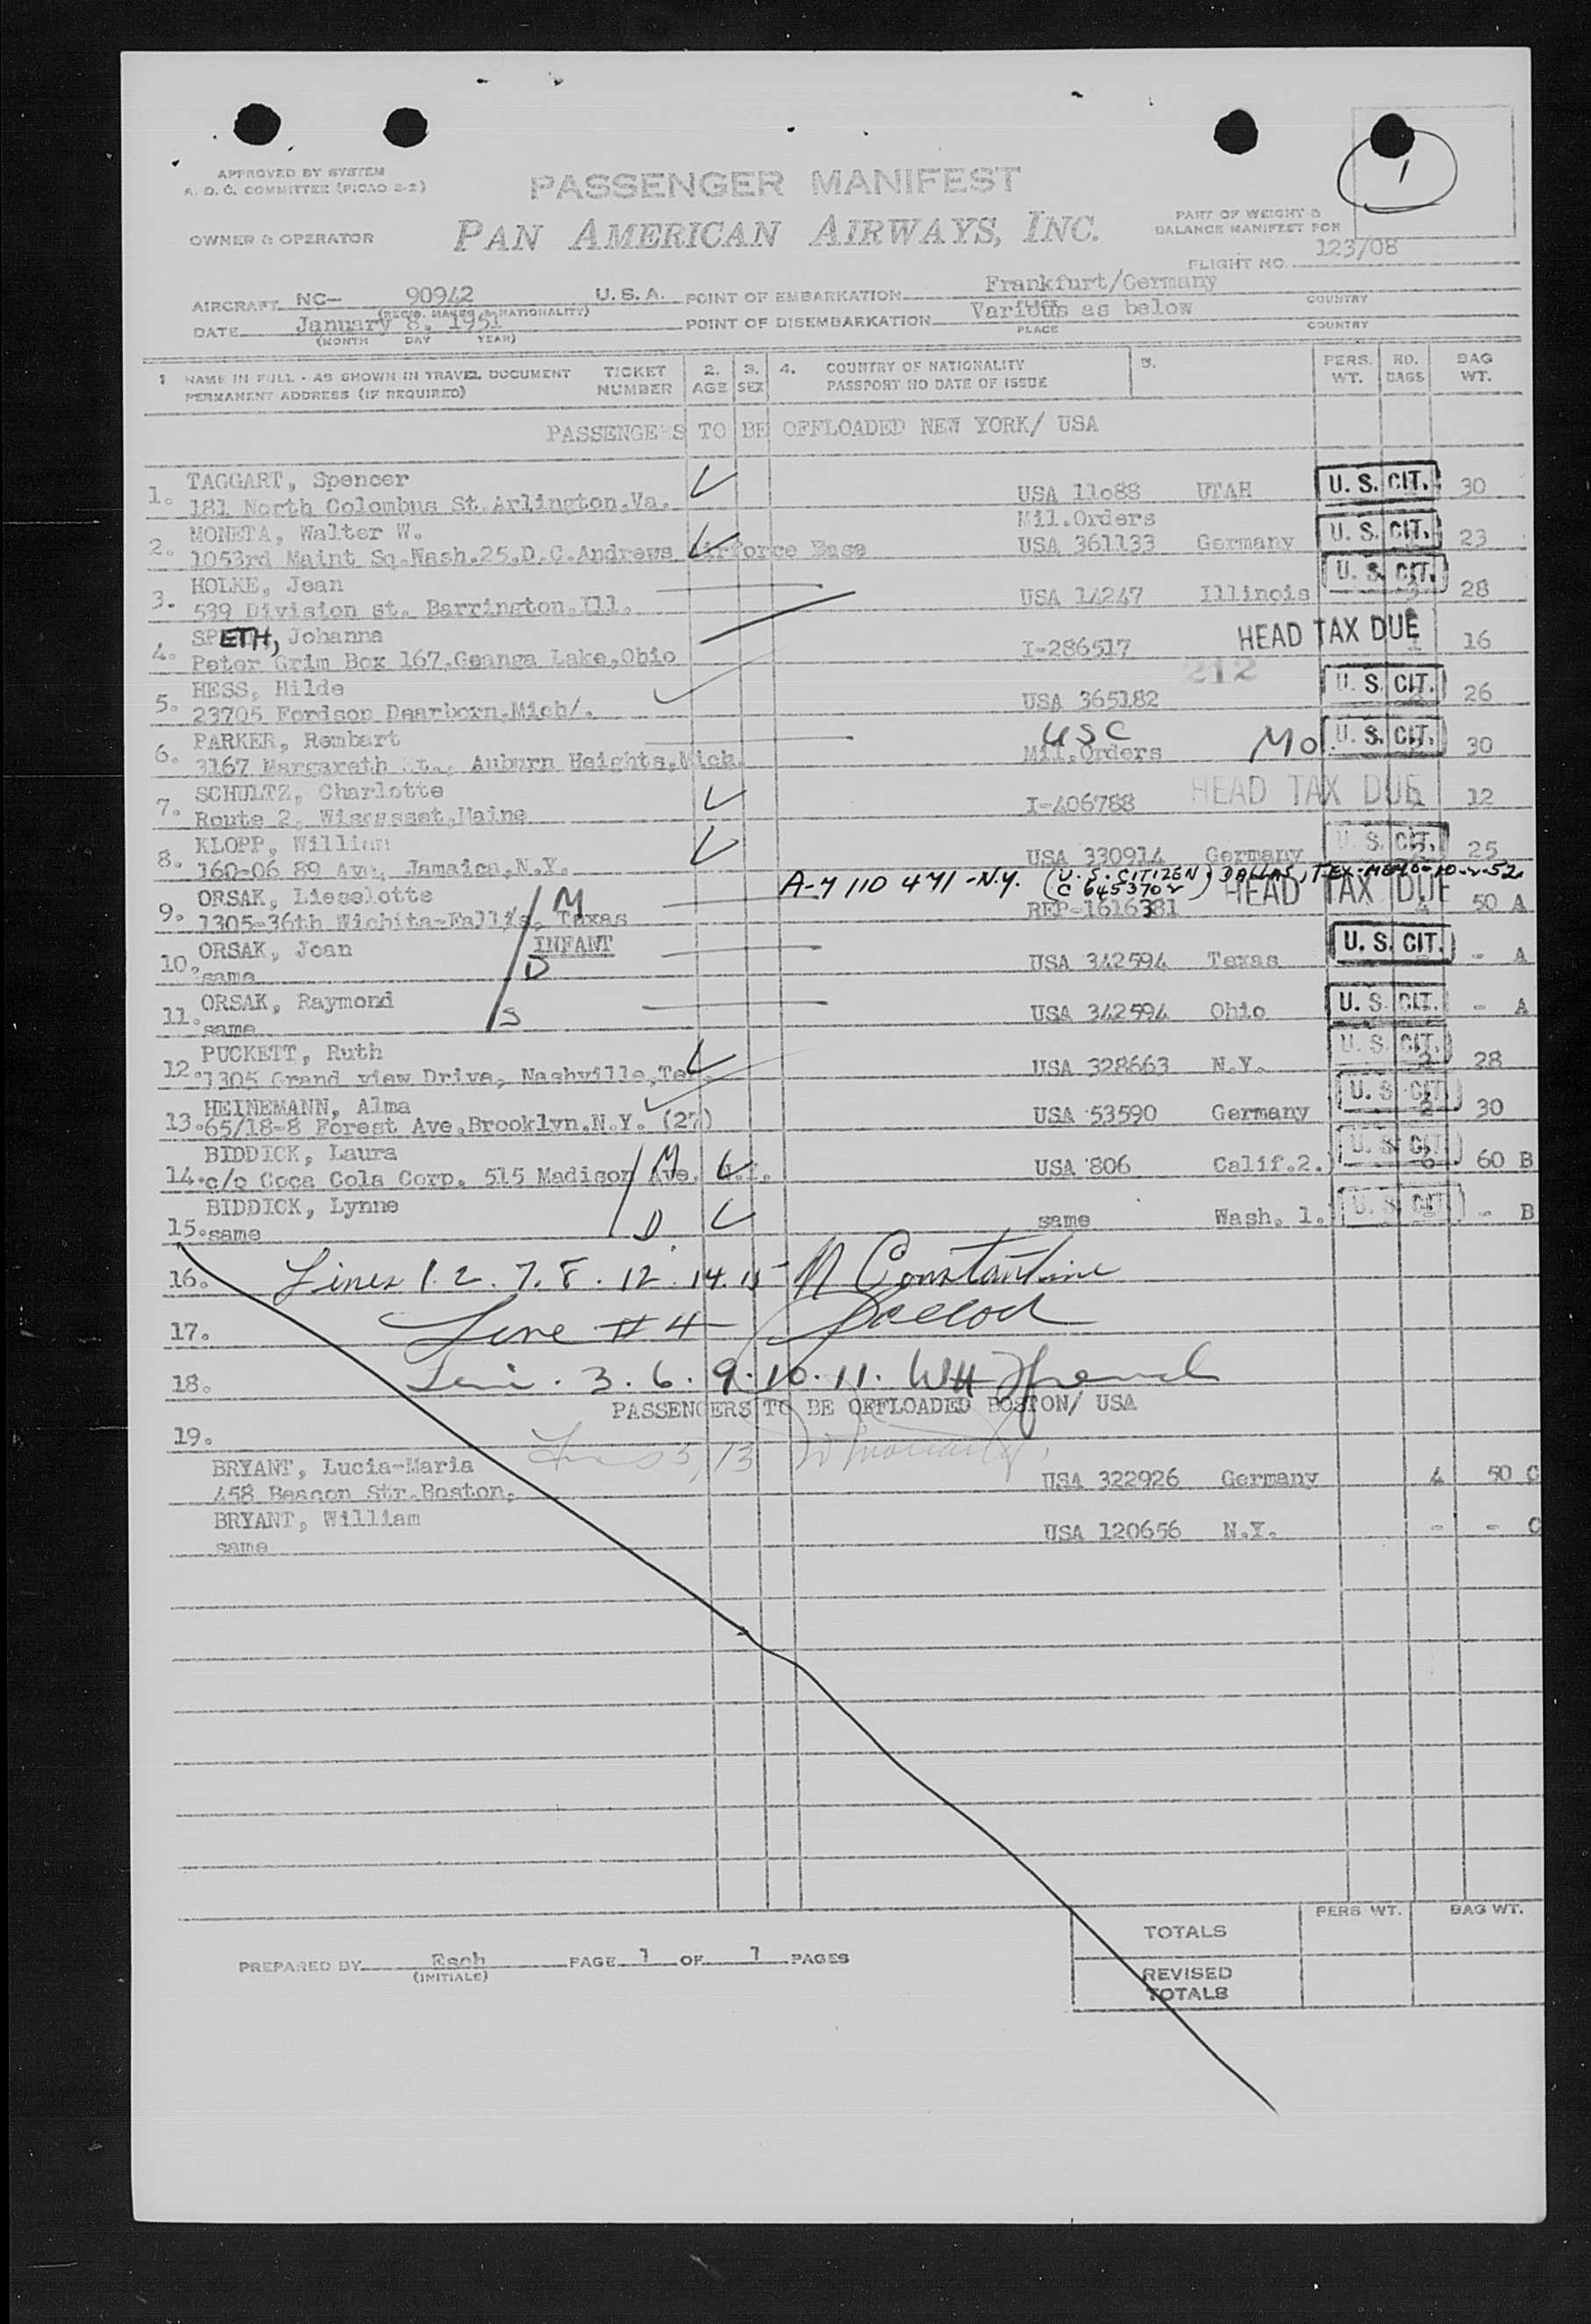 1
APPROVED BY SYSTEM
A. D. C. COMMITTEE (PICAO 2-2)
PASSENGER MANIFEST
PAN AMERICAN AIRWAYS, INC.
OWNER & OPERATOR
PART OF WEIGHT &
BALANCE MANIFEST FOR
FLIGHT NO. 123/08
AIRCRAFT NC- 90942 U.S.A. POINT OF EMBARKATION Frankfurt/Germany
(REG'D. MARKS & NATIONALITY) PLACE COUNTRY
DATE January 8, 1951 POINT OF DISEMBARKATION Various as below
(MONTH DAY YEAR) PLACE COUNTRY
1 NAME IN FULL - AS SHOWN IN TRAVEL DOCUMENT TICKET 2. 3. 4. COUNTRY OF NATIONALITY 5. PERS. NO. BAG
PERMANENT ADDRESS (IF REQUIRED) NUMBER AGE SEX PASSPORT NO DATE OF ISSUE WT. BAGS WT.
PASSENGERS TO BE OFFLOADED NEW YORK/ USA
TAGGART, Spencer
1. 181 North Colombus St.Arlington.Va. USA 11o88 UTAH U. S. CIT. 30
MONETA, Walter W. Mil.Orders
2. 1053rd Maint Sq.Wash.25.D.C.Andrews Airforce Base USA 361133 Germany U. S. CIT. 23
HOLKE, Jean
3. 539 Division st. Barrington.Ill. USA 14247 Illinois U. S. CIT. 28
SPETH, Johanna
4. Peter Grim Box 167,Geanga Lake,Ohio I-286517 HEAD TAX DUE 1 16
212
HESS, Hilde
5. 23705 Fordson Dearborn.Mich/. USA 365182 U. S. CIT. 26
PARKER, Rembart USC
6. 3167 Margareth St., Auburn Heights,Mich. Mil.Orders Mo. U. S. CIT. 30
SCHULTZ, Charlotte
7. Route 2, Wiscasset,Maine I-406788 HEAD TAX DUE 12
KLOPP, William
8. 160-06 89 Ave, Jamaica,N.Y. USA 330914 Germany U. S. CIT. 25
A-7 110 471-N.Y. (U.S. CITIZEN, DALLAS, TEX.-MEMO-10-2-52
C 6453702)
ORSAK, Lieselotte M
9. 1305-36th Wichita-Falls, Texas REP-1616381 HEAD TAX DUE 4 50 A
ORSAK, Joan INFANT
10. same D USA 342594 Texas U. S. CIT. - A
ORSAK, Raymond
11. same S USA 342594 Ohio U. S. CIT. - A
PUCKETT, Ruth
12. 1305 Grand view Drive, Nashville,Ten. USA 328663 N.Y. U. S. CIT. 2 28
HEINEMANN, Alma
13. 65/18-8 Forest Ave,Brooklyn,N.Y. (27) USA 53590 Germany U. S. CIT. 2 30
BIDDICK, Laura
14. c/o Coca Cola Corp. 515 Madison Ave. N.Y. M USA 806 Calif.2. U. S. CIT. 6 60 B
BIDDICK, Lynne
15. same D same Wash. 1. U. S. CIT. - B
16. Lines 1. 2. 7. 8. 12. 14. 15 N Constantine
17. Line # 4
18. 3. 6. 9. 10. 11. WH French
PASSENGERS TO BE OFFLOADED BOSTON/ USA
19. Lines 5, 13
BRYANT, Lucia-Maria
458 Beacon Str.Boston, USA 322926 Germany 4 50 C
BRYANT, William
same USA 120656 N.Y. - - C
PERS WT. BAG WT.
TOTALS
REVISED
TOTALS
PREPARED BY Esch PAGE 1 OF 1 PAGES
(INITIALS)